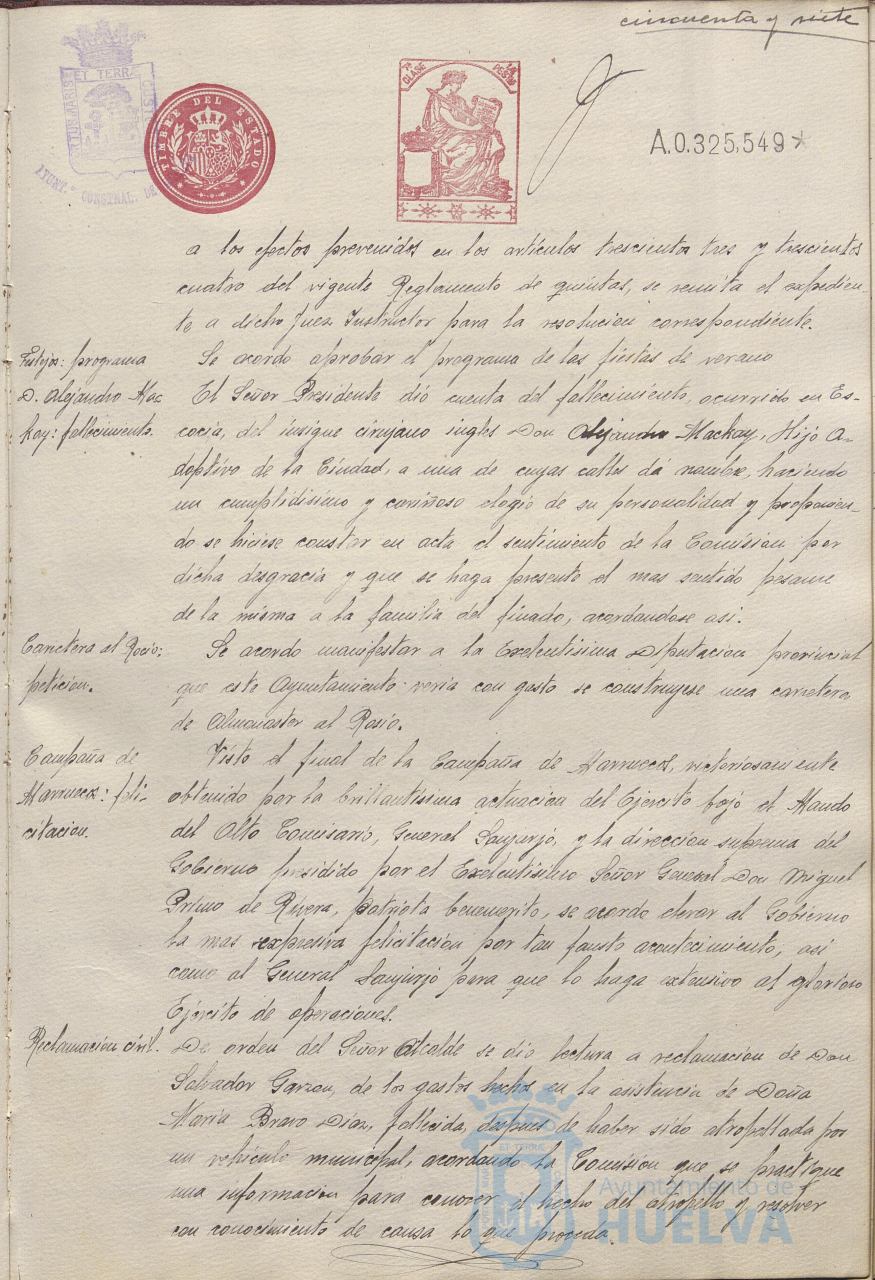 cincuenta y siete
PORTUS MARIS ET TERRÆ CUSTODIA
AYUNT.º CONSTNAL. DE
TIMBRE DEL ESTADO
7ª CLASE 1ª PESETAS
A.0.325,549*
a los efectos prevenidos en los artículos trescientos tres y trescientos
cuatro del vigente Reglamento de quintas, se remita el expedien-
te a dicho Juez Instructor para la resolucion correspondiente.
Festejos: programa
Se acordo aprobar el programa de las fiestas de verano
D. Alejandro Mac
kay: fallecimiento.
El Señor Presidente dió cuenta del fallecimiento, ocurrido en Es-
cocia, del insigne cirujano ingles Don Alejandro Mackay, Hijo A-
doptivo de la Ciudad, a una de cuyas calles dá nombre, haciendo
un cumplidisimo y cariñoso elogio de su personalidad y proponien-
do se hiciese constar en acta el sentimiento de la Comision por
dicha desgracia y que se haga presente el mas sentido pesame
de la misma a la familia del finado, acordandose asi.
Carretera al Rocio:
peticion.
Se acordo manifestar a la Exelentisima Diputacion provincial
que este Ayuntamiento veria con gusto se construyese una carretera
de Almonaster al Rosio.
Campaña de
Marruecos: feli-
citacion.
Visto el final de la Campaña de Marruecos, victoriosamente
obtenido por la brillantisima actuacion del Ejercito bajo el Mando
del Alto Comisario, General Sanjurjo, y la direccion suprema del
Gobierno presidido por el Exelentisimo Señor General Don Miguel
Primo de Rivera, patriota benemerito, se acordo elevar al Gobierno
la mas expresiva felicitacion por tan fausto acontecimiento, asi
como al General Sanjurjo para que lo haga extensivo al glorioso
Ejército de operaciones.
Reclamacion civil.
De orden del Señor Alcalde se dio lectura a reclamacion de Don
Salvador Garzon, de los gastos hechos en la asistencia de Doña
Maria Bravo Diaz, fallecida, despues de haber sido atropellada por
un vehiculo municipal, acordando la Comision que se practique
una informacion para conocer el hecho del atropello y resolver
con conocimiento de causa lo que proceda.
Ayuntamiento de
HUELVA